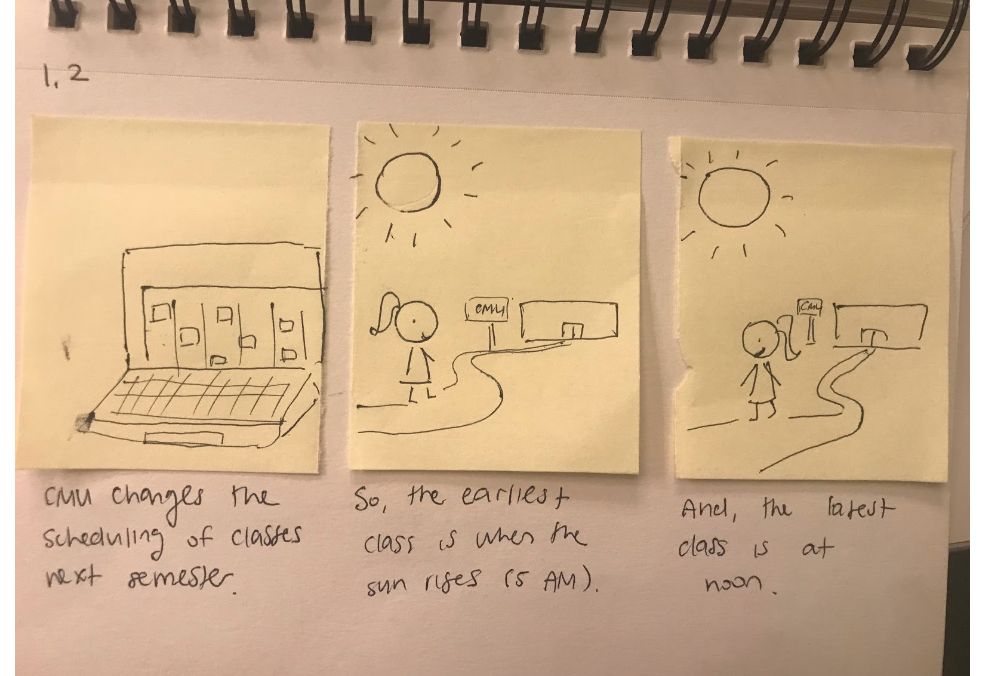 1,2
CMU
CMU
CMU changes the
scheduling of classes
next semester.
So, the earliest
class is when the
sun rises (5 AM).
And, the latest
class is at
noon.